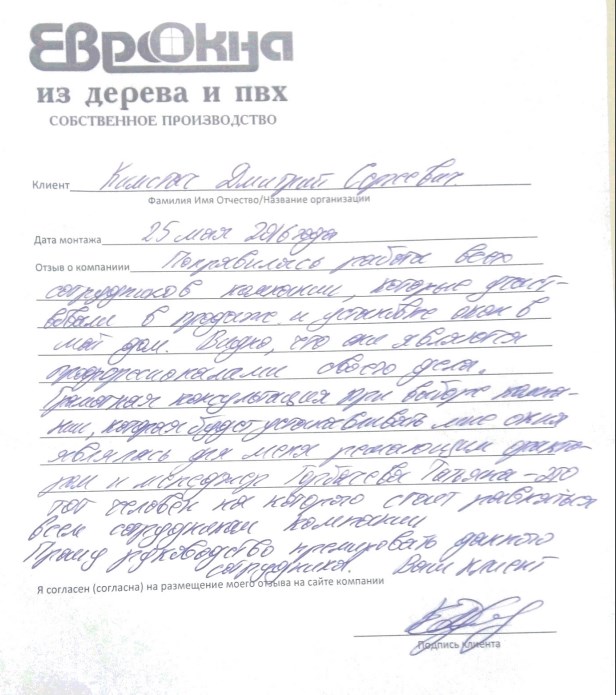 ЕвроОкна
из дерева и пвх
СОБСТВЕННОЕ ПРОИЗВОДСТВО
Клиент Дмитрий Сергеевич.
Фамилия Имя Отчество/Название организации
Дата монтажа 25 мая 2016 года
Отзыв о компаниии Понравилась работа всех
сотрудников компании, которые участ-
вовали в продаже и установке окон в
мой дом. Видно, что они являются
профессионалами своего дела.
Грамотная консультация при выборе компа-
нии, которая будет устанавливать мне окна
являлась для меня решающим факто-
ром и менеджер Татьяна - это
тот человек на которого стоит равняться
всем сотрудникам компании
Прошу руководство премировать данного
сотрудника. Ваш клиент
Я согласен (согласна) на размещение моего отзыва на сайте компании
Подпись клиента